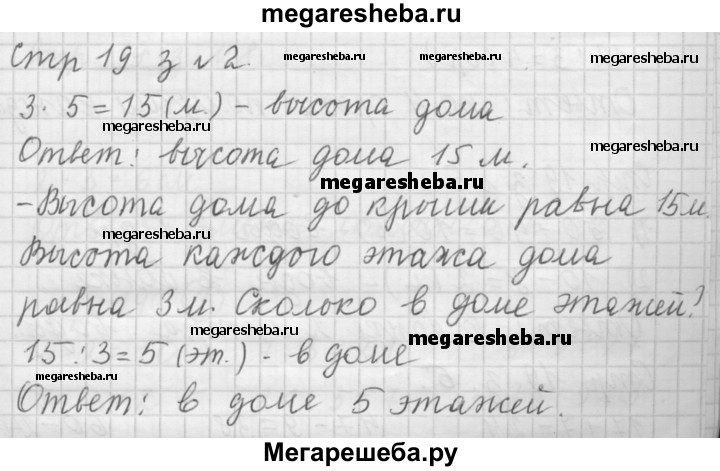 megaresheba.ru
Стр 19 з №2.
megaresheba.ru
megaresheba.ru
megaresheba.ru
3 · 5 = 15 (м.) - высота дома
megaresheba.ru
Ответ: высота дома 15 м.
megaresheba.ru
megaresheba.ru
- Высота дома до крыши равна 15 м.
megaresheba.ru
Высота каждого этажа дома
равна 3 м. Сколько в доме этажей?
megaresheba.ru
megaresheba.ru
15 : 3 = 5 (эт.) - в доме
megaresheba.ru
Ответ: в доме 5 этажей.
Мегарешеба.ру